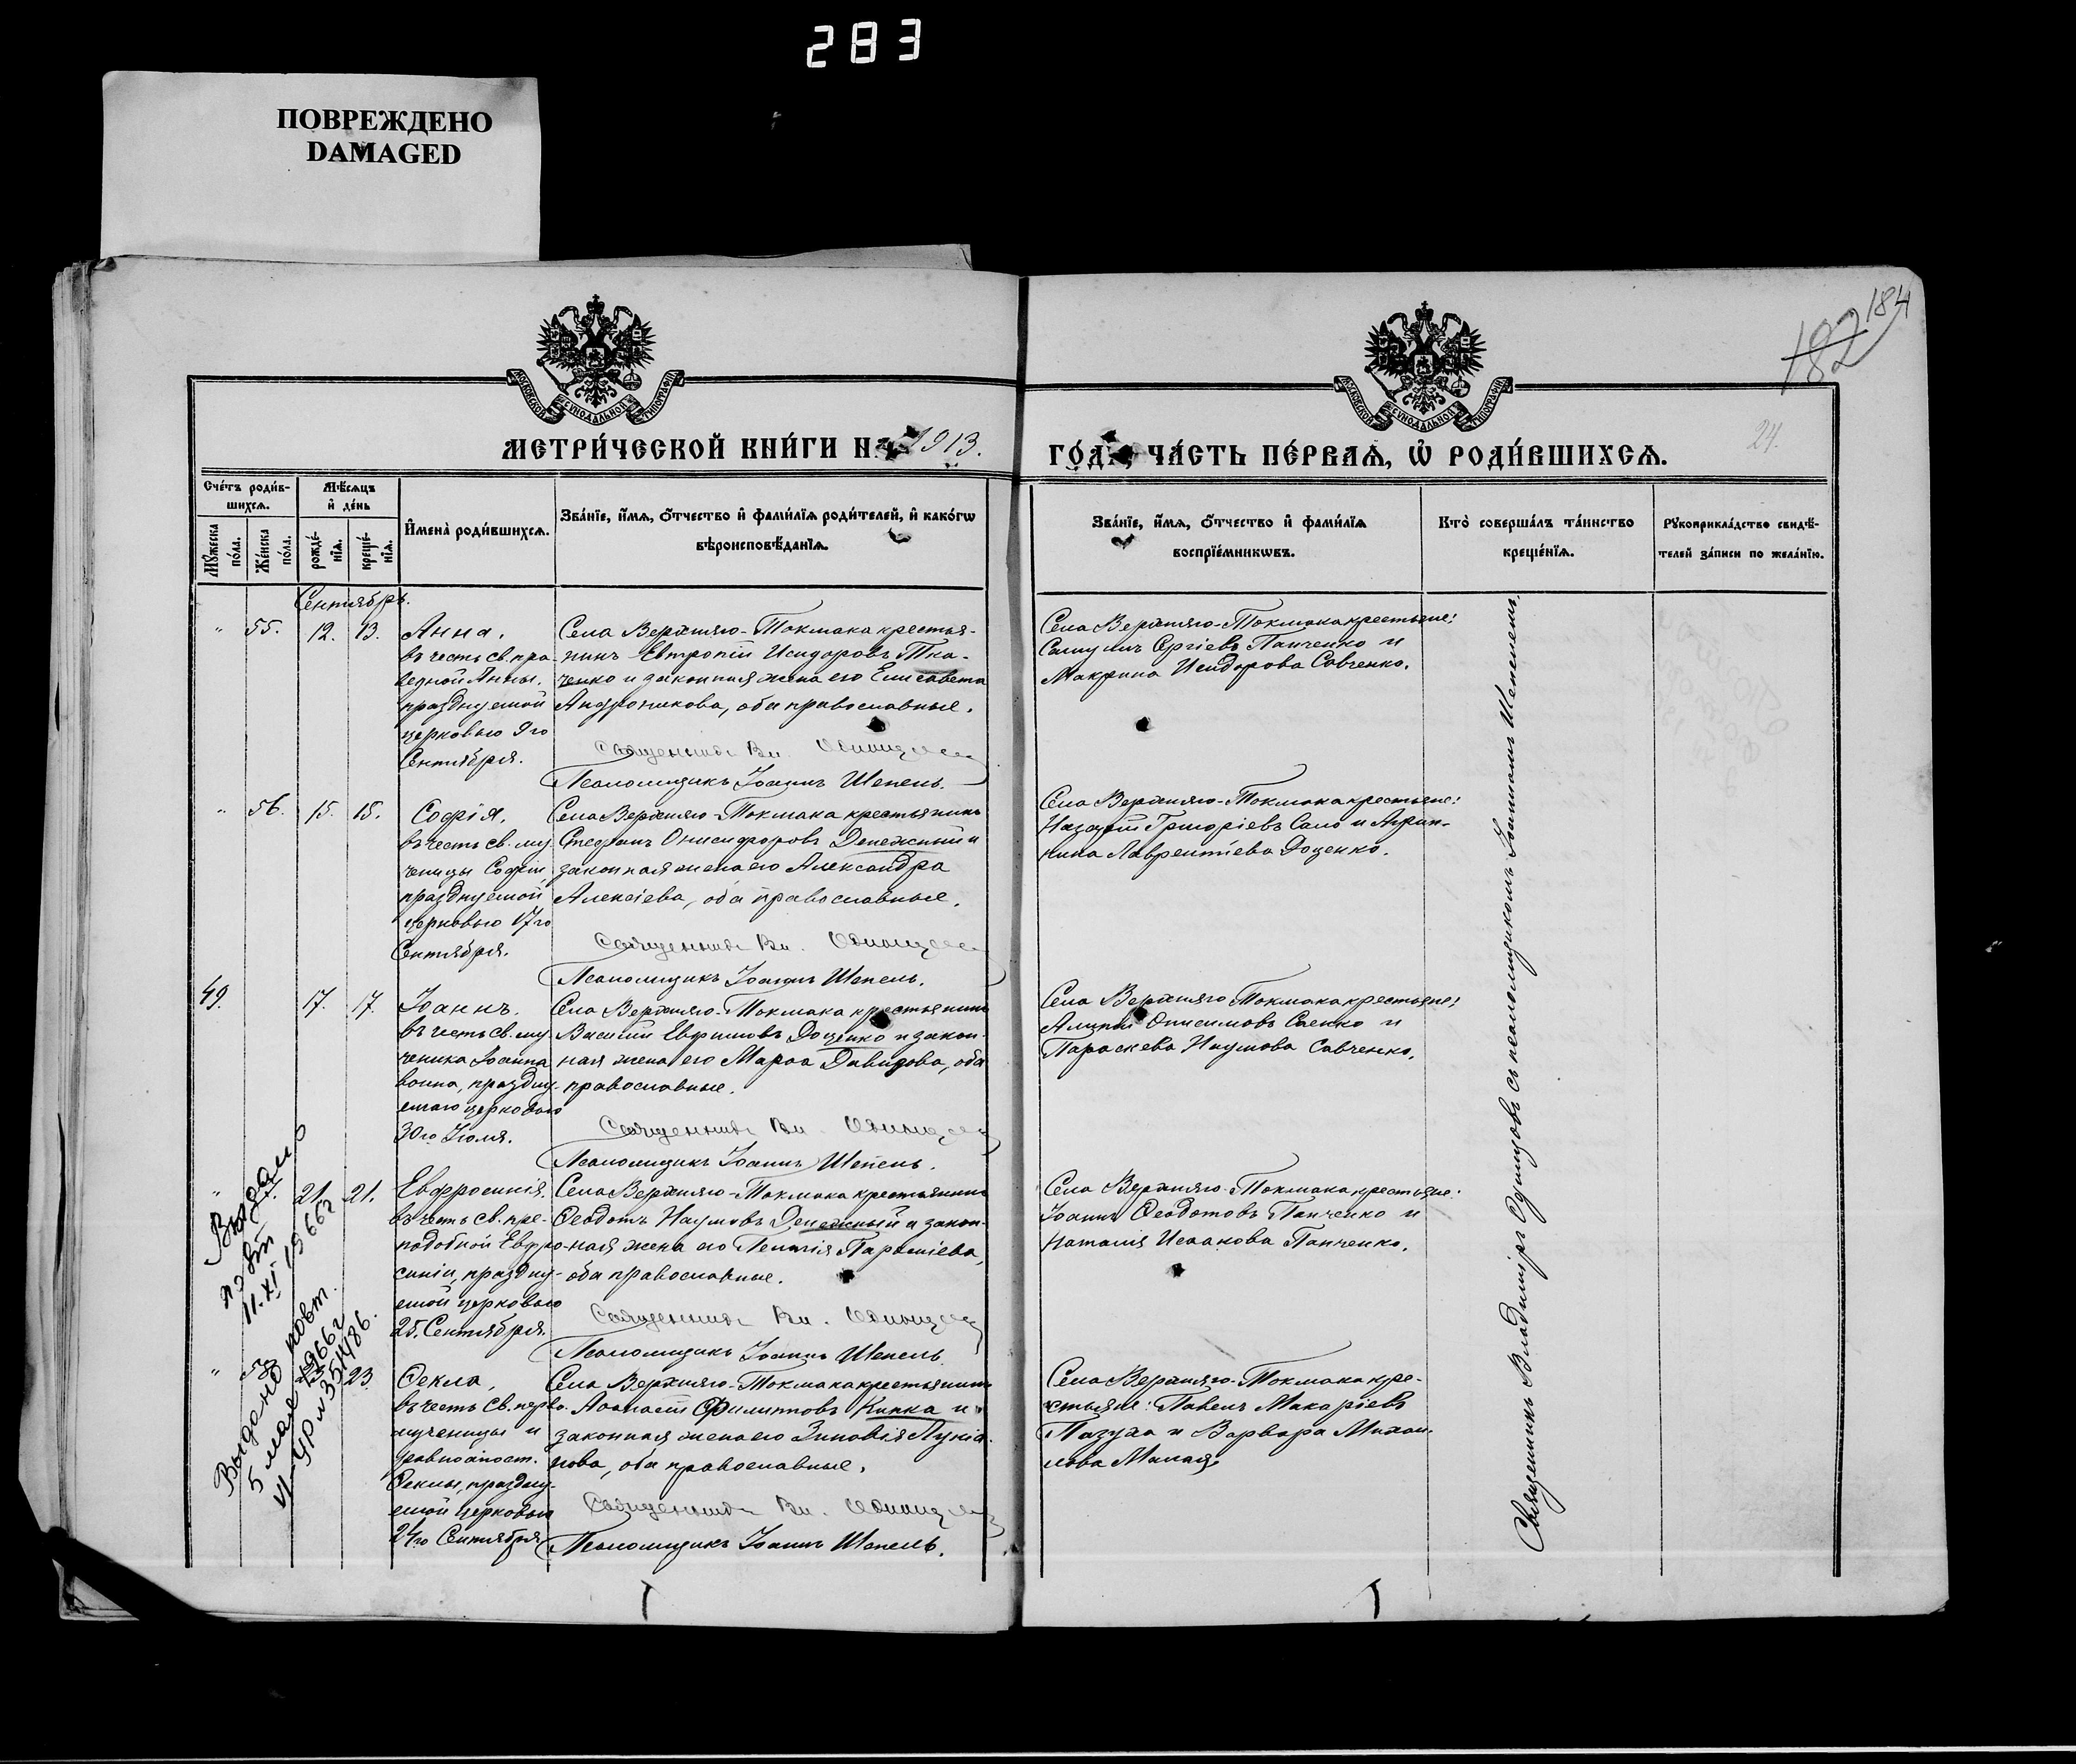 283
ПОВРЕЖДЕНО
DAMAGED
184
182
24.
МОСКОВСКОЙ СѴНОДАЛЬНОЙ ТИПОГРАФІИ
МОСКОВСКОЙ СѴНОДАЛЬНОЙ ТИПОГРАФІИ
МЕТРИ́ЧЕСКОЙ КНИ́ГИ Н 1913.
ГО́Д ЧА́СТЬ ПЕ́РВАѦ, Ѡ҆ РОДИ́ВШИХСѦ.
Сче́тъ роди́в-
шихсѧ.
Мѹ́жеска по́ла.
Же́нска по́ла.
Мѣ́сѧцъ
и҆ де́нь
рожде́-
нїѧ.
креще́-
нїѧ.
И҆мена̀ роди́вшихсѧ.
Зва́нїе, и҆́мѧ, ѻ҆́тчество и҆ фами́лїѧ роди́телей, и҆ како́гѡ
вѣроисповѣ́данїѧ.
Зва́нїе, и҆́мѧ, ѻ҆́тчество и҆ фами́лїѧ
воспрїе́мникѡвъ.
Кто̀ соверша́лъ та́инство
креще́нїѧ.
Рѹкоприкла́дство свидѣ́-
телей за́писи по жела́нїю.
Сентябрь.
" 55. 12. 13.
Анна,
въ честь св. пра-
ведной Анны,
празднуемой
церковью 9го
Сентября.
Села Верхняго-Токмака крестья-
нинъ Евтропій Исидоровъ Тка-
ченко и законная жена его Елисавета
Андроникова, оба православные.
Священникъ Вл. Одинцовъ
Псаломщикъ Іоаннъ Шепель.
Села Верхняго-Токмака крестьяне:
Самуилъ Сергіевъ Панченко и
Макрина Исидорова Савченко.
" 56. 15. 15.
Софія,
въ честь св. му-
ченицы Софіи,
празднуемой
церковью 17го
Сентября.
Села Верхняго-Токмака крестьянинъ
Стефанъ Онисифоровъ Денежный и
законная жена его Александра
Алексіева, оба православные.
Священникъ Вл. Одинцовъ
Псаломщикъ Іоаннъ Шепель.
Села Верхняго-Токмака крестьяне:
Назарій Григоріевъ Сало и Агрип-
пина Лаврентіева Доценко.
49. 17. 17.
Іоаннъ,
въ честь св. му-
ченика Іоанна
воина, праздну-
емаго церковью
30го Іюля.
Села Верхняго-Токмака крестьянинъ
Василій Евфимовъ Доценко и закон-
ная жена его Марѳа Давидова, оба
православные.
Священникъ Вл. Одинцовъ
Псаломщикъ Іоаннъ Шепель.
Села Верхняго Токмака крестьяне:
Алипій Онисимовъ Саенко и
Параскева Наумова Савченко.
" 21. 21.
Евфросинія,
въ честь св. пре-
подобной Евфро-
синіи, праздну-
емой церковью
25. Сентября.
Села Верхняго-Токмака крестьянинъ
Ѳеодотъ Наумовъ Денежный и закон-
ная жена его Пелагія
оба православные.
Священникъ Вл. Одинцовъ
Псаломщикъ Іоаннъ Шепель.
Села Верхняго-Токмака крестьяне:
Іоаннъ Ѳеодотовъ Панченко и
Наталія Исаакова Панченко.
" 58 23.
Ѳекла,
въ честь св. перво-
мученицы и
равноапост.
Ѳеклы, праздну-
емой церковью
24го Сентября.
Села Верхняго-Токмака крестьянинъ
Аѳанасій Филипповъ Кипка и
законная жена его Зиновія Лукіа-
нова, оба православные.
Священникъ Вл. Одинцовъ
Псаломщикъ Іоаннъ Шепель.
Села Верхняго-Токмака кре-
стьяне: Павелъ Макаріевъ
Пазуха и Варвара Михаи-
лова Малая.
Выдано
повт
11.XI 1966г
Выдано повт.
5 мая 1966г
351486.
Священникъ Владиміръ Одинцовъ съ псаломщикомъ Іоанномъ Шепелемъ.